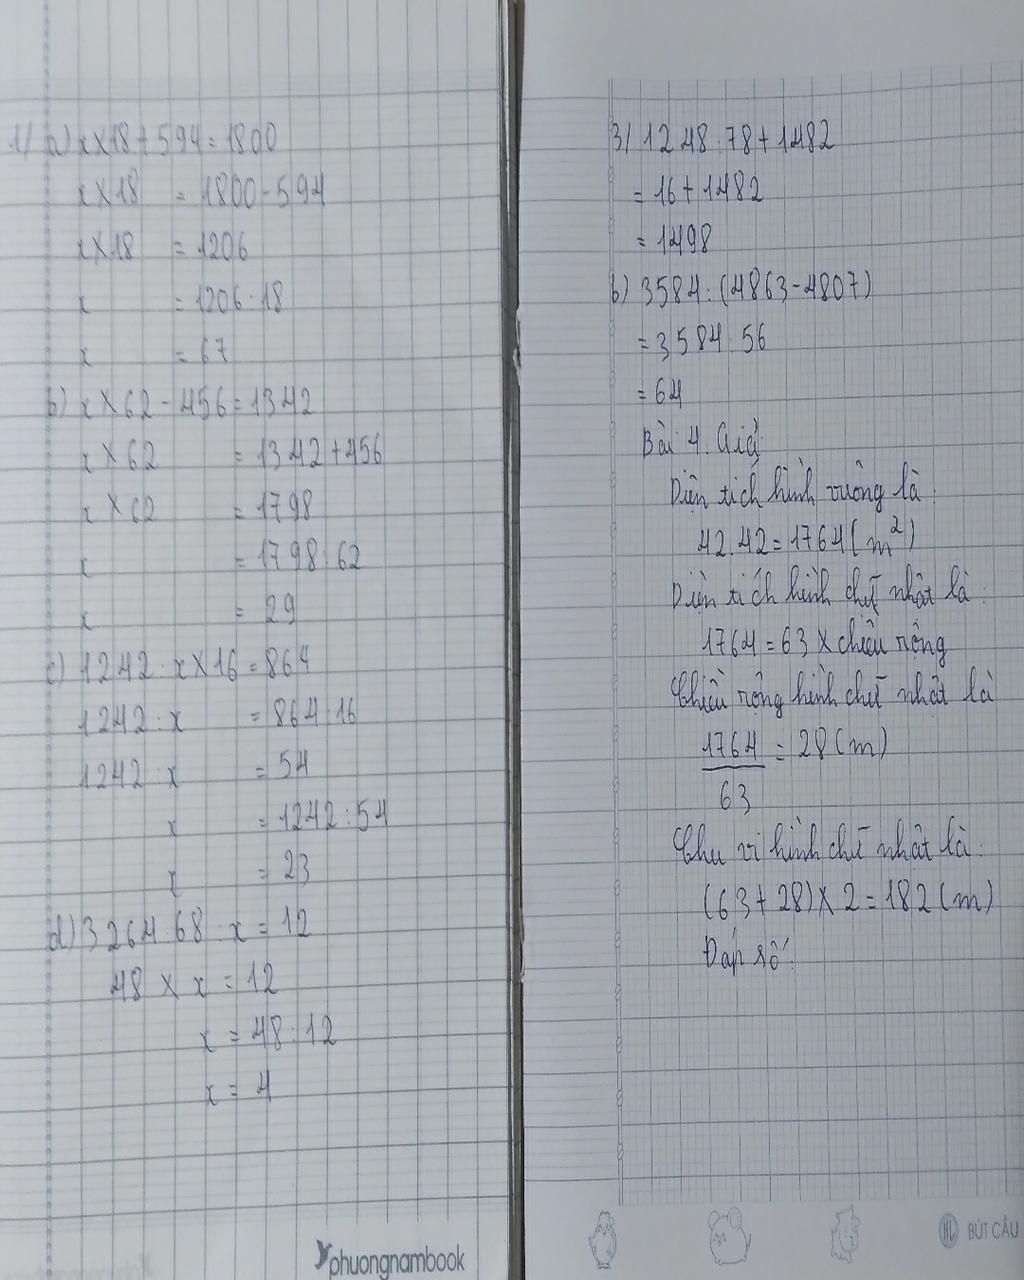 1/ a) x X 18 + 594 = 1800
x X 18 = 1800 - 594
x X 18 = 1206
x = 1206 : 18
x = 67
b) x X 62 - 456 = 1342
x X 62 = 1342 + 456
x X 62 = 1798
x = 1798 : 62
x = 29
c) 1242 : x X 16 = 864
1242 : x = 864 : 16
1242 : x = 54
x = 1242 : 54
x = 23
d) 3264 : 68 : x = 12
48 X x = 12
x = 48 : 12
x = 4
phuongnambook
3/ 1248 : 78 + 1482
= 16 + 1482
= 1498
b) 3584 : (4863 - 4807)
= 3584 : 56
= 64
Bài 4. Giải
Diện tích hình vuông là :
42.42 = 1764 (m²)
Diện tích hình chữ nhật là :
1764 = 63 x chiều rộng
Chiều rộng hình chữ nhật là
1764/63 = 28 (m)
Chu vi hình chữ nhật là :
(63 + 28) X 2 = 182 (m)
Đáp số :
BÚT CẦU